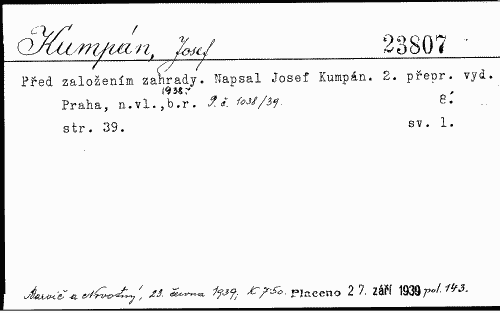 Kumpán, Josef 23807
Před založením zahrady. Napsal Josef Kumpán. 2. přepr. vyd.
1938?
Praha, n.vl., b.r. P.č. 1038/39. 8°.
str. 39. sv. 1.
Barvič a Novotný, 23. června 1939, K 7·50. Placeno 27. září 1939 pol. 143.